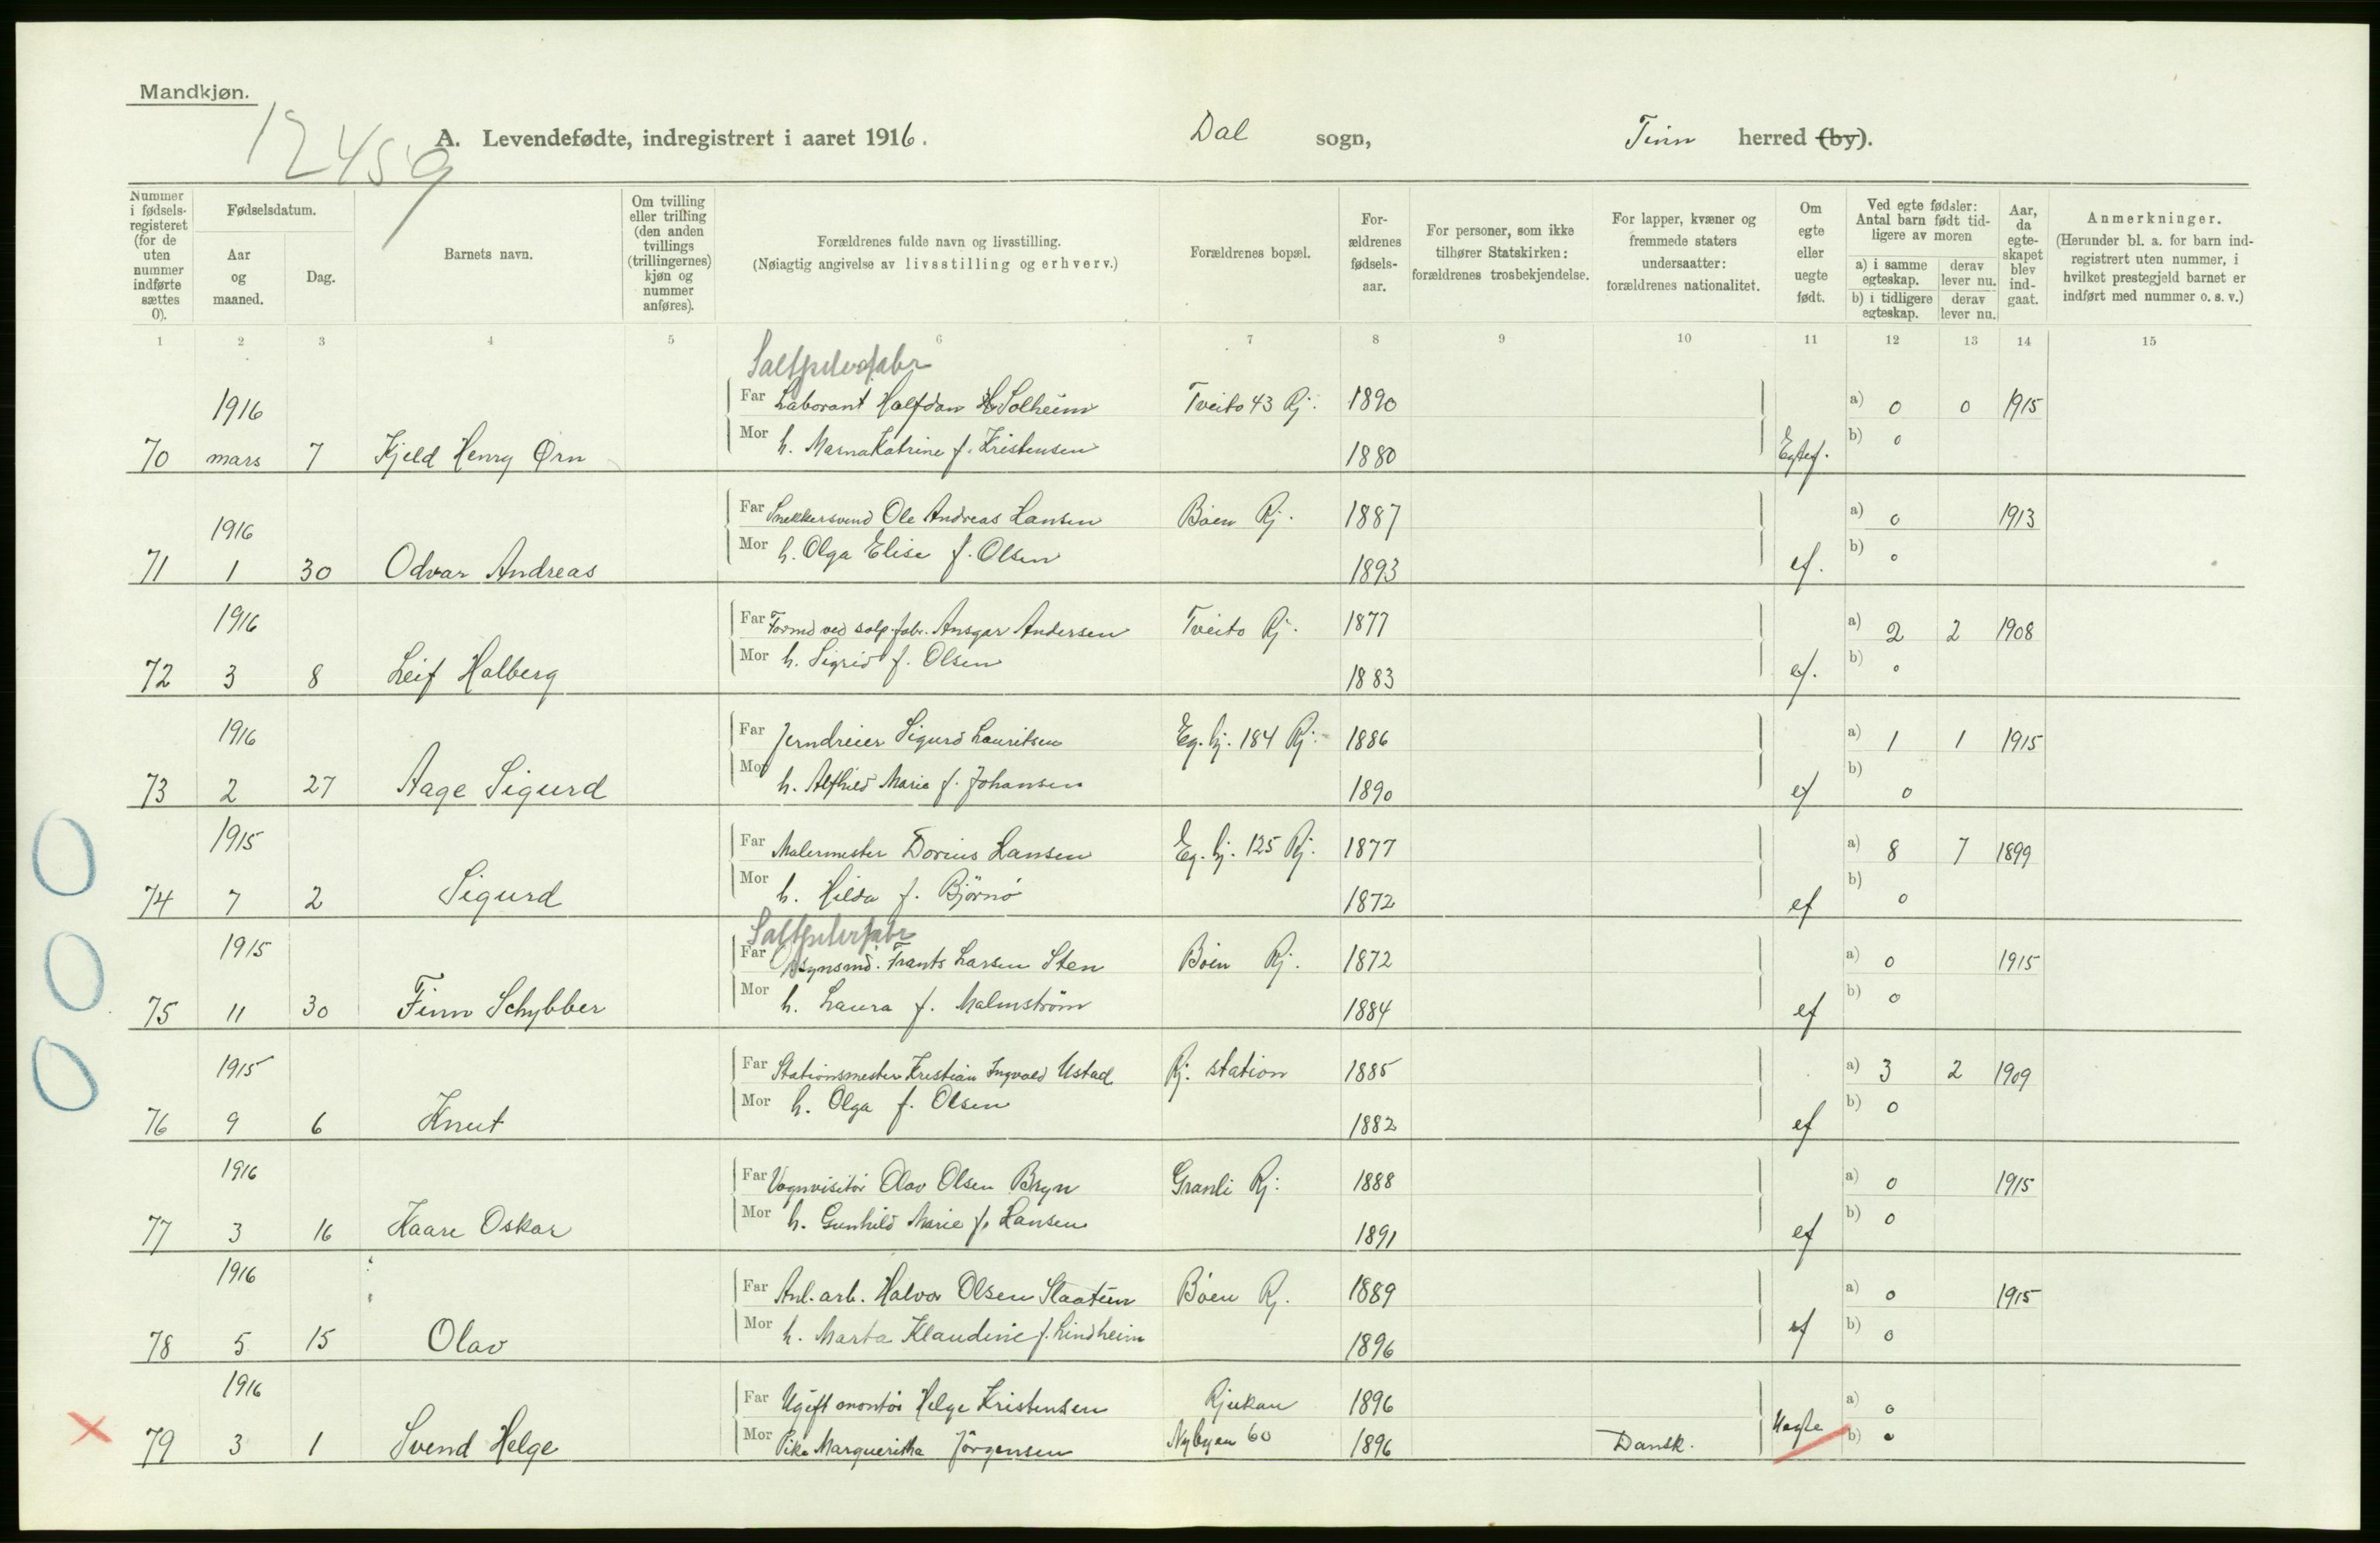 Mandkjøn.
12459
A. Levendefødte, indregistrert i aaret 1916. Dal sogn, Tinn herred (by).
Nummer i fødsels-registeret (for de uten nummer indførte sættes 0).
Fødselsdatum.
Aar og maaned.
Dag.
Barnets navn.
Om tvilling eller trilling (den anden tvillings (trillingernes) kjøn og nummer anføres).
Forældrenes fulde navn og livsstilling.
(Nøiagtig angivelse av livsstilling og erhverv.)
Forældrenes bopæl.
For-ældrenes fødsels-aar.
For personer, som ikke tilhører Statskirken: forældrenes trosbekjendelse.
For lapper, kvæner og fremmede staters undersaatter: forældrenes nationalitet.
Om egte eller uegte født.
Ved egte fødsler: Antal barn født tid-ligere av moren
a) i samme egteskap. derav lever nu.
b) i tidligere egteskap. derav lever nu.
Aar, da egte-skapet blev ind-gaat.
Anmerkninger.
(Herunder bl. a. for barn ind-registrert uten nummer, i hvilket prestegjeld barnet er indført med nummer o. s. v.)
1 2 3 4 5 6 7 8 9 10 11 12 13 14 15
Saltpeterfabr
1916 Far Laborant Halfdan H Solheim Tveito 43 Rj. 1890 a) 0 0 1915
70 mars 7 Kjeld Henry Ørn Mor h. Marna Katrine f. Kristensen 1880 Egtef. b) 0
1916 Far Snekkersvend Ole Andreas Hansen Bøen Rj. 1887 a) 0 1913
71 1 30 Odvar Andreas Mor h. Olga Elise f. Olsen 1893 ef. b) 0
1916 Far Formd ved salp.fabr. Ansgar Andersen Tveito Rj. 1877 a) 2 2 1908
72 3 8 Leif Halberg Mor h. Sigrid f. Olsen 1883 ef. b) 0
1916 Far Jerndreier Sigurd Lauritsen Eg. hj. 184 Rj. 1886 a) 1 1 1915
73 2 27 Aage Sigurd Mor h. Alfhild Marie f. Johansen 1890 ef b) 0
1915 Far Malermester Dorius Hansen Eg. hj. 125 Rj. 1877 a) 8 7 1899
0 74 7 2 Sigurd Mor h. Hilda f. Bjørnø 1872 ef b) 0
Saltpeterfabr
1915 Far Opsynsmd. Frants Larsen Sten Bøen Rj. 1872 a) 0 1915
0 75 11 30 Finn Schybber Mor h. Laura f. Malmstrøm 1884 ef b) 0
1915 Far Stationsmester Kristian Ingvald Ustad Rj. station 1885 a) 3 2 1909
0 76 9 6 Knut Mor h. Olga f. Olsen 1882 ef b) 0
1916 Far Vognvisitør Olav Olsen Bryn Granli Rj. 1888 a) 0 1915
77 3 16 Kaare Oskar Mor h. Gunhild Marie f. Hansen 1891 ef b) 0
1916 Far Anl. arb. Halvor Olsen Slaatun Bøen Rj. 1889 a) 0 1915
78 5 15 Olav Mor h. Marta Klaudine f. Lindheim 1896 ef b) 0
1916 Far Ugift montør Helge Kristensen Rjukan 1896 a) 0
79 3 1 Svend Helge Mor Pike Margueritha Jørgensen Nybyen 60 1896 Dansk. Uegte b) 0